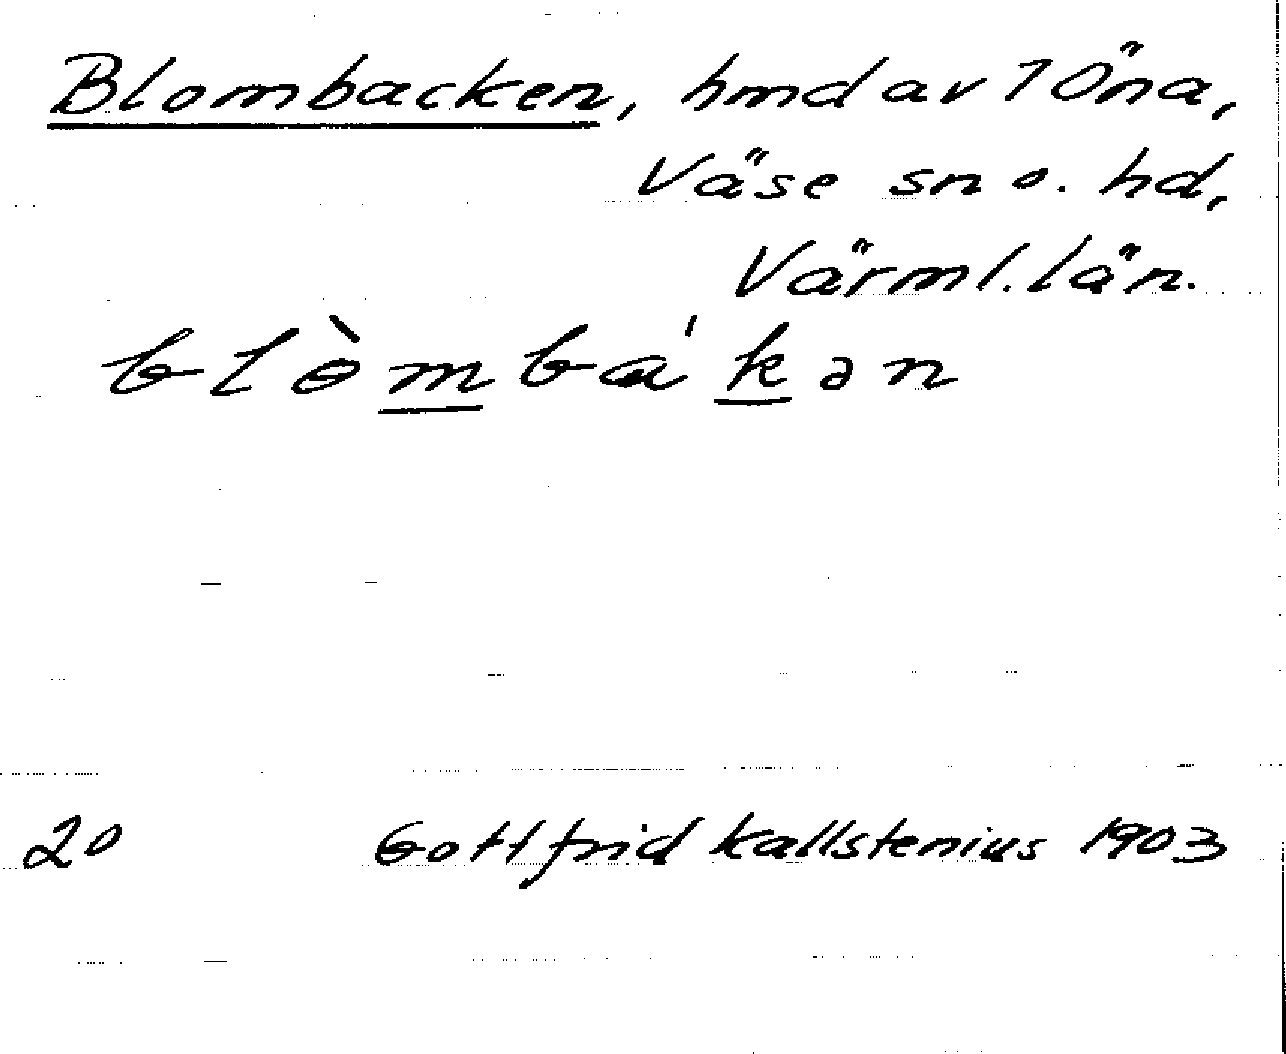 Blombacken, hmd av 1 Öna,
Väse sn o. hd,
Värml. län.
blɵ̀mbákən
20 Gottfrid Kallstenius 1903